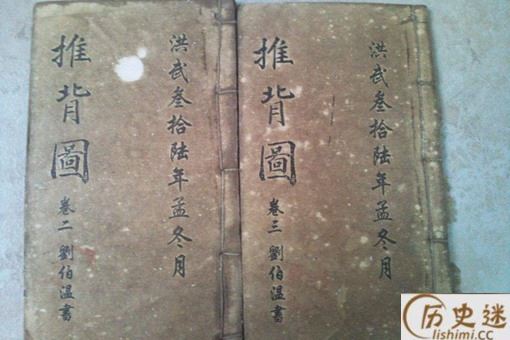 洪武叁拾陸年孟冬月
推背圖
卷二 劉伯温書
洪武叁拾陸年孟冬月
推背圖
卷三 劉伯温書
历史迷
lishimi.cc